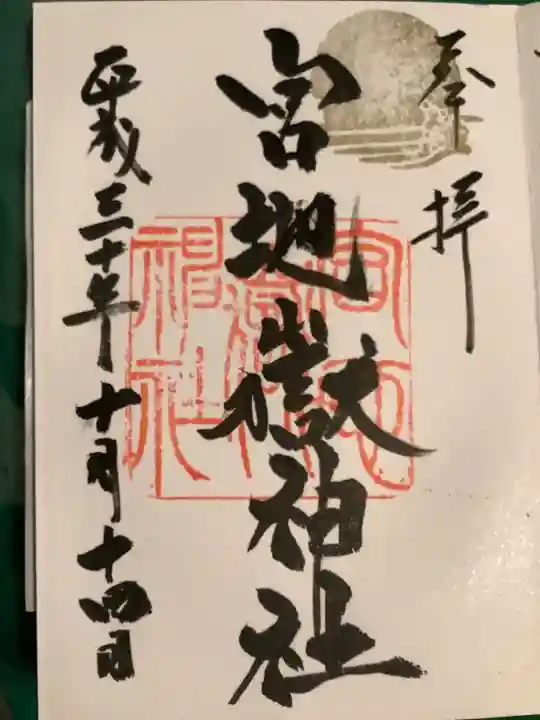 奉拝
宮地嶽神社
平成三十年十月十四日
宮地
嶽
神社